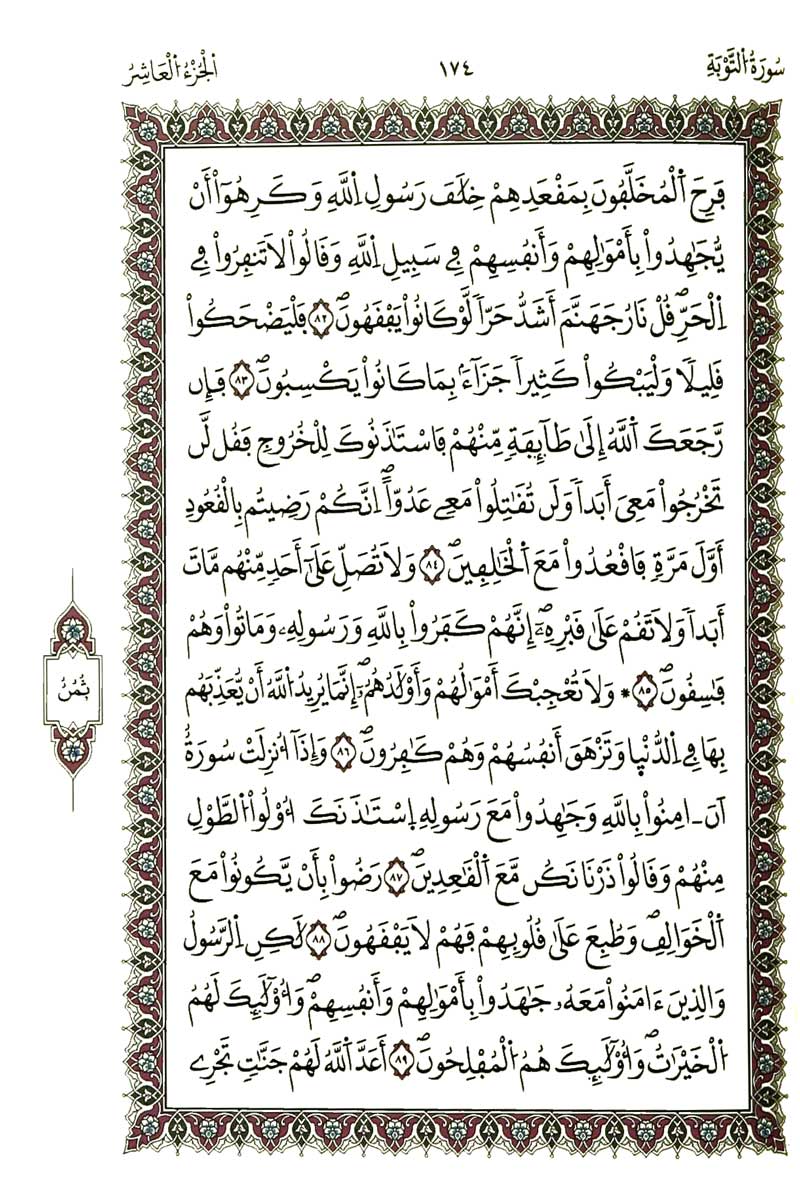 سُورَةُ التَّوْبَةِ
١٧٤
الْجُزْءُ الْعَاشِرُ
فَرِحَ اَ۬لْمُخَلَّفُونَ بِمَقْعَدِهِمْ خِلَٰفَ رَسُولِ اِ۬للَّهِ وَكَرِهُوٓاْ أَنْ
يُّجَٰهِدُواْ بِأَمْوَٰلِهِمْ وَأَنفُسِهِمْ فِے سَبِيلِ اِ۬للَّهِ وَقَالُواْ لَا تَنفِرُواْ فِے
اِ۬لْحَرِّۖ قُلْ نَارُ جَهَنَّمَ أَشَدُّ حَرّاٗ لَّوْ كَانُواْ يَفْقَهُونَۖ ٨٢ فَلْيَضْحَكُواْ
قَلِيلٗا وَلْيَبْكُواْ كَثِيراٗ جَزَآءَۢ بِمَا كَانُواْ يَكْسِبُونَۖ ٨٣ فَإِن
رَّجَعَكَ اَ۬للَّهُ إِلَىٰ طَآئِفَةٖ مِّنْهُمْ فَاسْتَـٰٔذَنُوكَ لِلْخُرُوجِ فَقُل لَّن
تَخْرُجُواْ مَعِيَ أَبَداٗ وَلَن تُقَٰتِلُواْ مَعِے عَدُوّاًۖ اِنَّكُمْ رَضِيتُم بِالْقُعُودِ
أَوَّلَ مَرَّةٖ فَاقْعُدُواْ مَعَ اَ۬لْخَٰلِفِينَۖ ٨٤ وَلَا تُصَلِّ عَلَىٰٓ أَحَدٖ مِّنْهُم مَّاتَ
أَبَداٗ وَلَا تَقُمْ عَلَىٰ قَبْرِهِۦٓۖ إِنَّهُمْ كَفَرُواْ بِاللَّهِ وَرَسُولِهِۦ وَمَاتُواْ وَهُمْ
فَٰسِقُونَۖ ٨٥ * وَلَا تُعْجِبْكَ أَمْوَٰلُهُمْ وَأَوْلَٰدُهُمُۥٓۖ إِنَّمَا يُرِيدُ اُ۬للَّهُ أَنْ يُّعَذِّبَهُم
بِهَا فِے اِ۬لدُّنْي۪ا وَتَزْهَقَ أَنفُسُهُمْ وَهُمْ كَٰفِرُونَۖ ٨٦ وَإِذَآ أُنزِلَتْ سُورَةٌ
اَنَ اٰمِنُواْ بِاللَّهِ وَجَٰهِدُواْ مَعَ رَسُولِهِ اِ۪سْتَـٰٔذَنَكَ أُوْلُواْ اُ۬لطَّوْلِ
مِنْهُمْ وَقَالُواْ ذَرْنَا نَكُن مَّعَ اَ۬لْقَٰعِدِينَۖ ٨٧ رَضُواْ بِأَنْ يَّكُونُواْ مَعَ
اَ۬لْخَوَالِفِۖ وَطُبِعَ عَلَىٰ قُلُوبِهِمْ فَهُمْ لَا يَفْقَهُونَۖ ٨٨ لَٰكِنِ اِ۬لرَّسُولُ
وَالذِينَ ءَامَنُواْ مَعَهُۥ جَٰهَدُواْ بِأَمْوَٰلِهِمْ وَأَنفُسِهِمْۖ وَأُوْلَٰٓئِكَ لَهُمُ
اُ۬لْخَيْرَٰتُۖ وَأُوْلَٰٓئِكَ هُمُ اُ۬لْمُفْلِحُونَۖ ٨٩ أَعَدَّ اَ۬للَّهُ لَهُمْ جَنَّٰتٖ تَجْرِے
ثُمُنُ